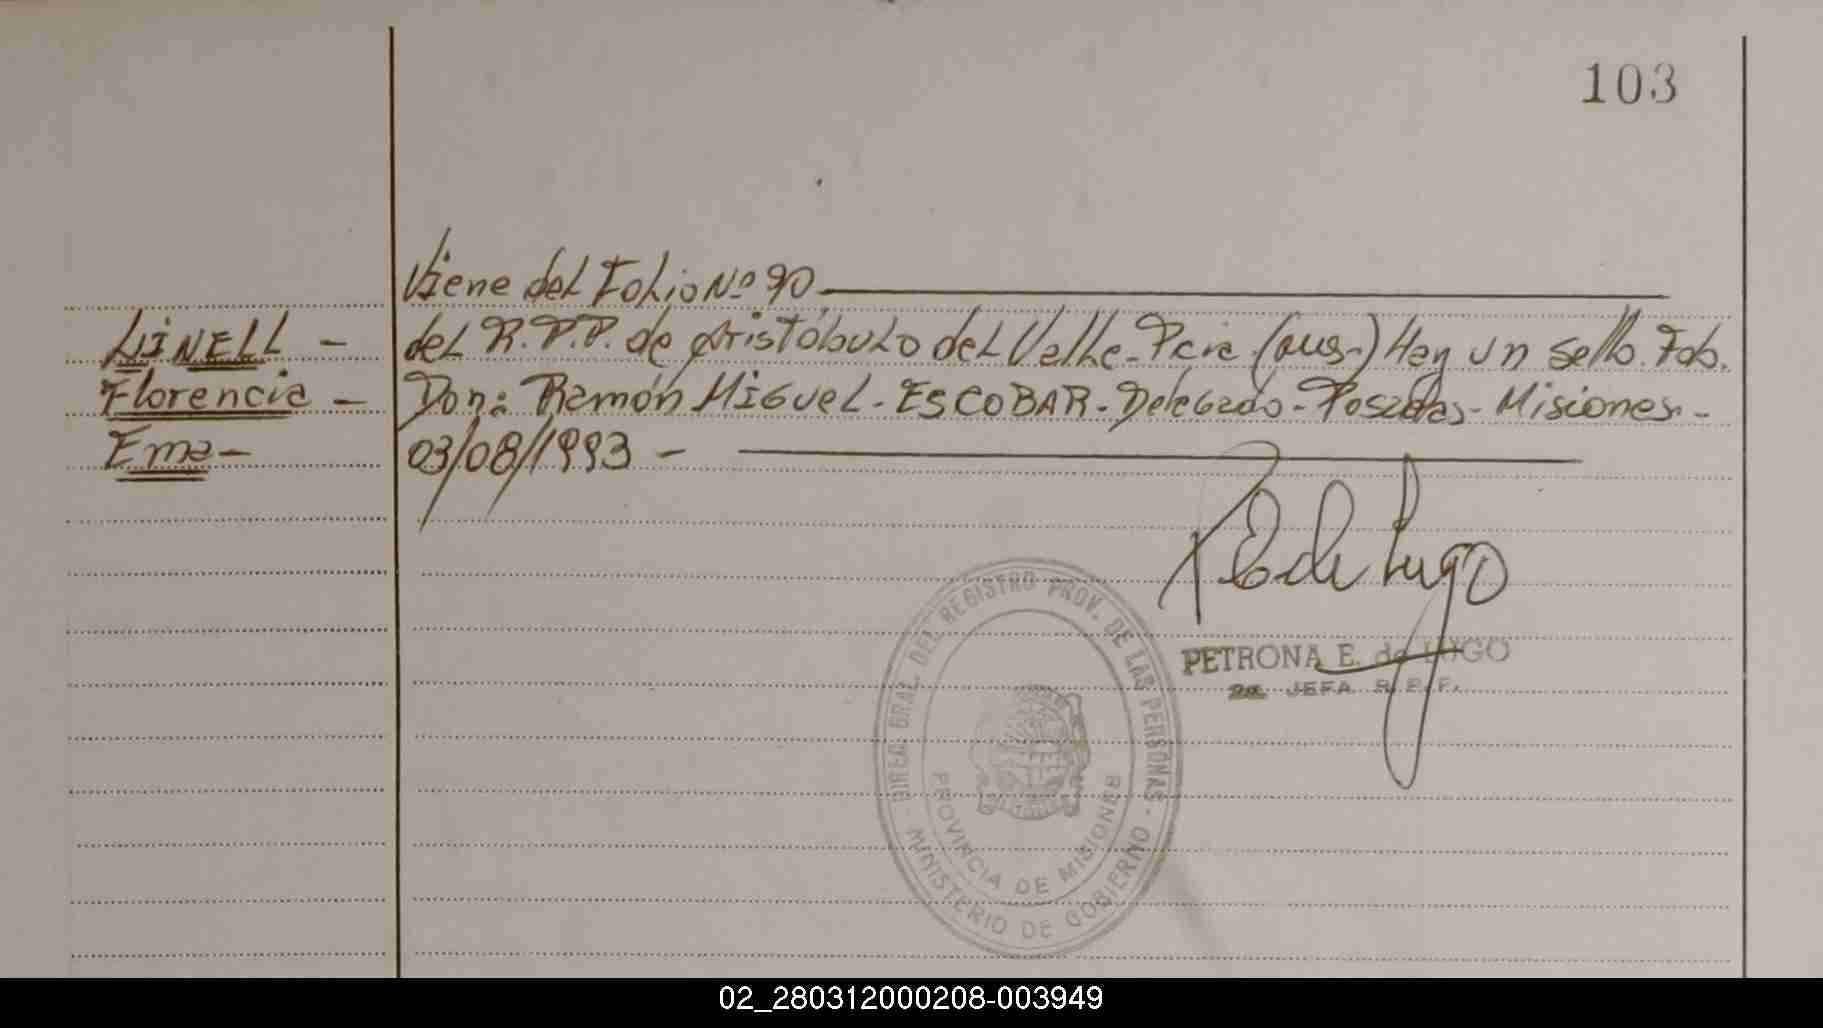 103
Viene del Folio Nº 90
LiNELL - del R.P.P. de Aristóbulo del Valle - Pcia. (aus.) Hay un sello. Fdo.
Florencia - Don: Ramón Miguel - ESCOBAR - Delegado - Posadas - Misiones -
Ema - 03/08/1993 -
P E de Lugo
PETRONA E. de LUGO
2a. JEFA R.P.P.
DIREC. GRAL. DEL REGISTRO PROV. DE LAS PERSONAS
PROVINCIA DE MISIONES
MINISTERIO DE GOBIERNO
02_280312000208-003949